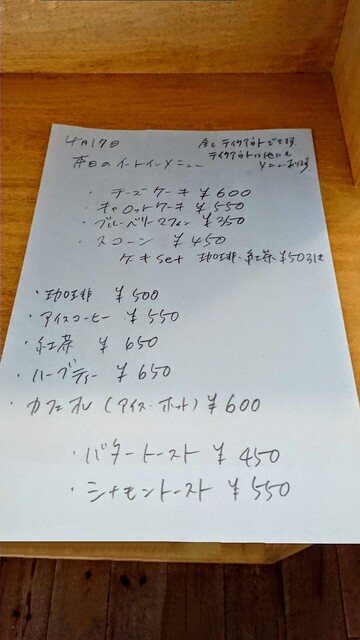 4月17日
全てテイクアウトできます。
テイクアウトは他にも
メニューあります。
本日のイートインメニュー
・チーズケーキ ¥600
・キャロットケーキ ¥550
・ブルーベリーマフィン ¥350
・スコーン ¥450
ケーキset 珈琲・紅茶 ¥50引き
・珈琲 ¥500
・アイスコーヒー ¥550
・紅茶 ¥650
・ハーブティー ¥650
・カフェオレ (アイス・ホット) ¥600
・バタートースト ¥450
・シナモントースト ¥550